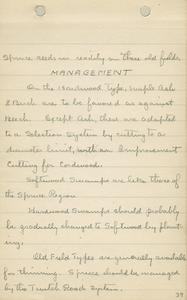 Spruce seeds in readily on these old fields.
MANAGEMENT
On the Hardwood Type, Maple Ash
& Birch are to be favored as against
Beech. Except Ash, these are adapted
to a Selection System by cutting to a
diameter limit, with an Improvement
Cutting for Cordwood.
Softwood Swamps are like those of
the Spruce Region.
Hardwood Swamps should probably
be gradually changed to Softwood by plant-
ing.
Old Field Types are generally available
for thinning. Spruce should be managed
by the System.
39